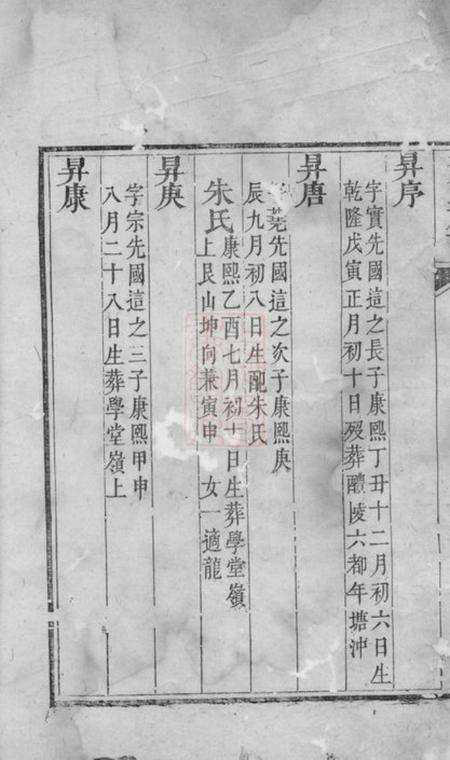 昇序
字實先國這之長子康熙丁丑十二月初六日生
乾隆戊寅正月初十日歿葬醴陵六都年塘沖
昇唐
堯先國這之次子康熙庚
辰九月初八日生配朱氏
朱氏
康熙乙酉七月初十日生葬學堂嶺
上艮山坤向兼寅申 女一適龍
昇庚
字宗先國這之三子康熙甲申
八月二十八日生葬學堂嶺上
昇康